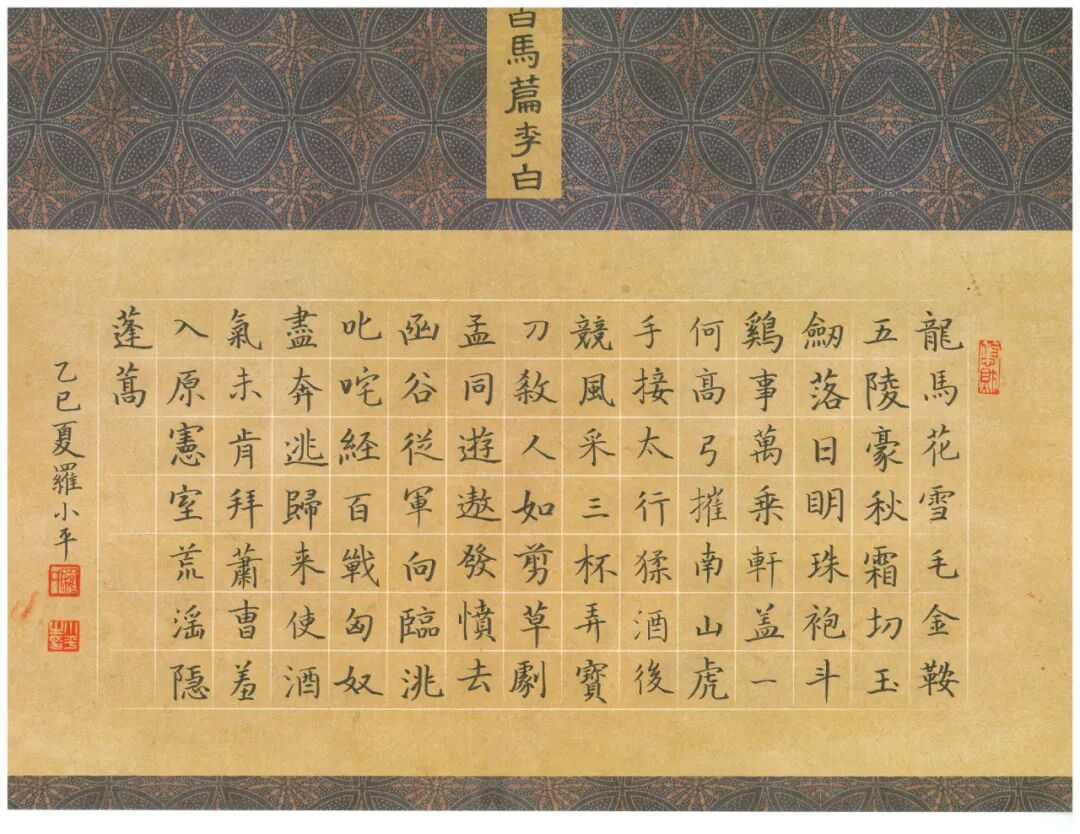 白馬萹李白
龍馬花雪毛金鞍
五陵豪秋霜切玉
劒落日眀珠袍斗
鷄事萬乗軒盖一
何高弓摧南山虎
手接太行猱酒後
競風采三杯弄寳
刀殺人如剪草劇
孟同遊遨發憤去
函谷從軍向臨洮
叱咤経百戰匈奴
盡奔逃歸来使酒
氣未肯拜蕭曹羞
入原憲室荒淫隱
蓬蒿
乙巳夏羅小平